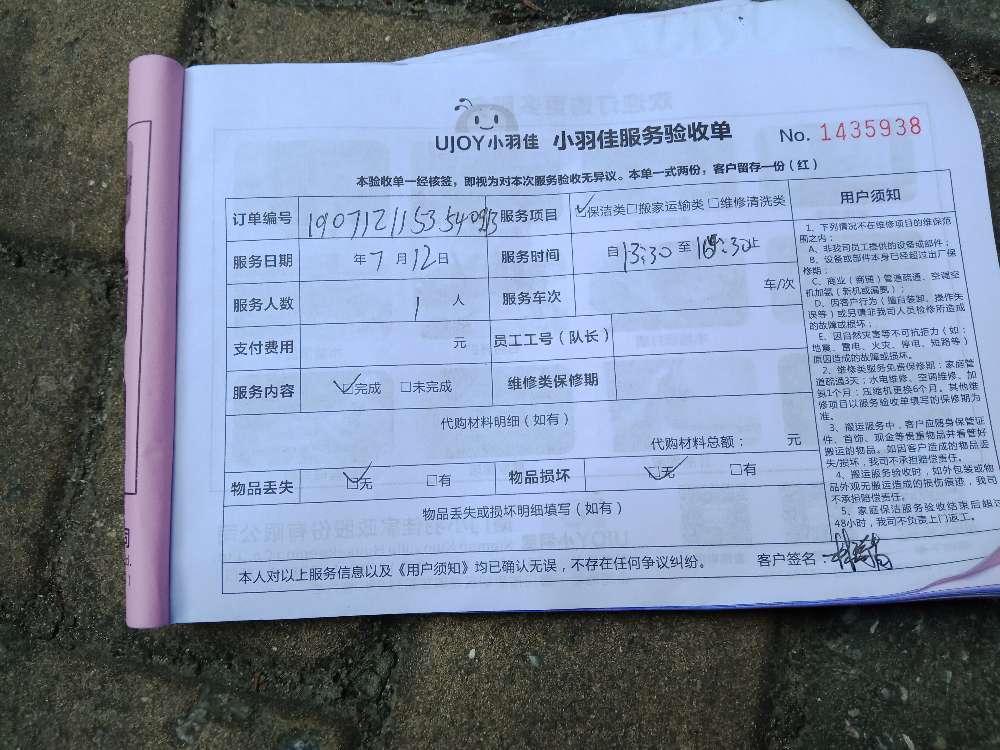 UJOY小羽佳 小羽佳服务验收单 No. 1435938
本验收单一经核签，即视为对本次服务验收无异议。本单一式两份，客户留存一份（红）
订单编号 服务项目 ☑保洁类□搬家运输类□维修清洗类
服务日期 年7月12日 服务时间 自13:30至 :30止
服务人数 1人 服务车次 车/次
支付费用 元 员工工号（队长）
服务内容 ☑完成 □未完成 维修类保修期
代购材料明细（如有）
代购材料总额： 元
物品丢失 ☑无 □有 物品损坏 ☑无 □有
物品丢失或损坏明细填写（如有）
本人对以上服务信息以及《用户须知》均已确认无误，不存在任何争议纠纷。 客户签名：
用户须知
1、下列情况不在维修项目的维保范
围之内：
A、非我司员工提供的设备或部件；
B、设备或部件本身已经超过出厂保
修期；
C、商业（商铺）管道疏通、空调空
机加氨（新机或漏氨）；
D、因客户行为（擅自装卸、操作失
误等）或另请非我司人员检修所造成
的故障或损坏；
E、因自然灾害等不可抗拒力（如：
地震、雷电、火灾、停电、短路等）
原因造成的故障或损坏。
2、维修类服务免费保修期：家庭管
道疏通3天；水电维修、空调维修、加
氨1个月；压缩机更换6个月。其他维
修项目以服务验收单填写的保修期为
准。
3、搬运服务中，客户应随身保管证
件、首饰、现金等贵重物品并看管好
搬运的物品。如因客户造成的物品丢
失/损坏，我司不承担赔偿责任。
4、搬运服务验收时，如外包装或物
品外观无搬运造成的损伤痕迹，我司
不承担赔偿责任。
5、家庭保洁服务验收结束后超过
48小时，我司不负责上门返工。